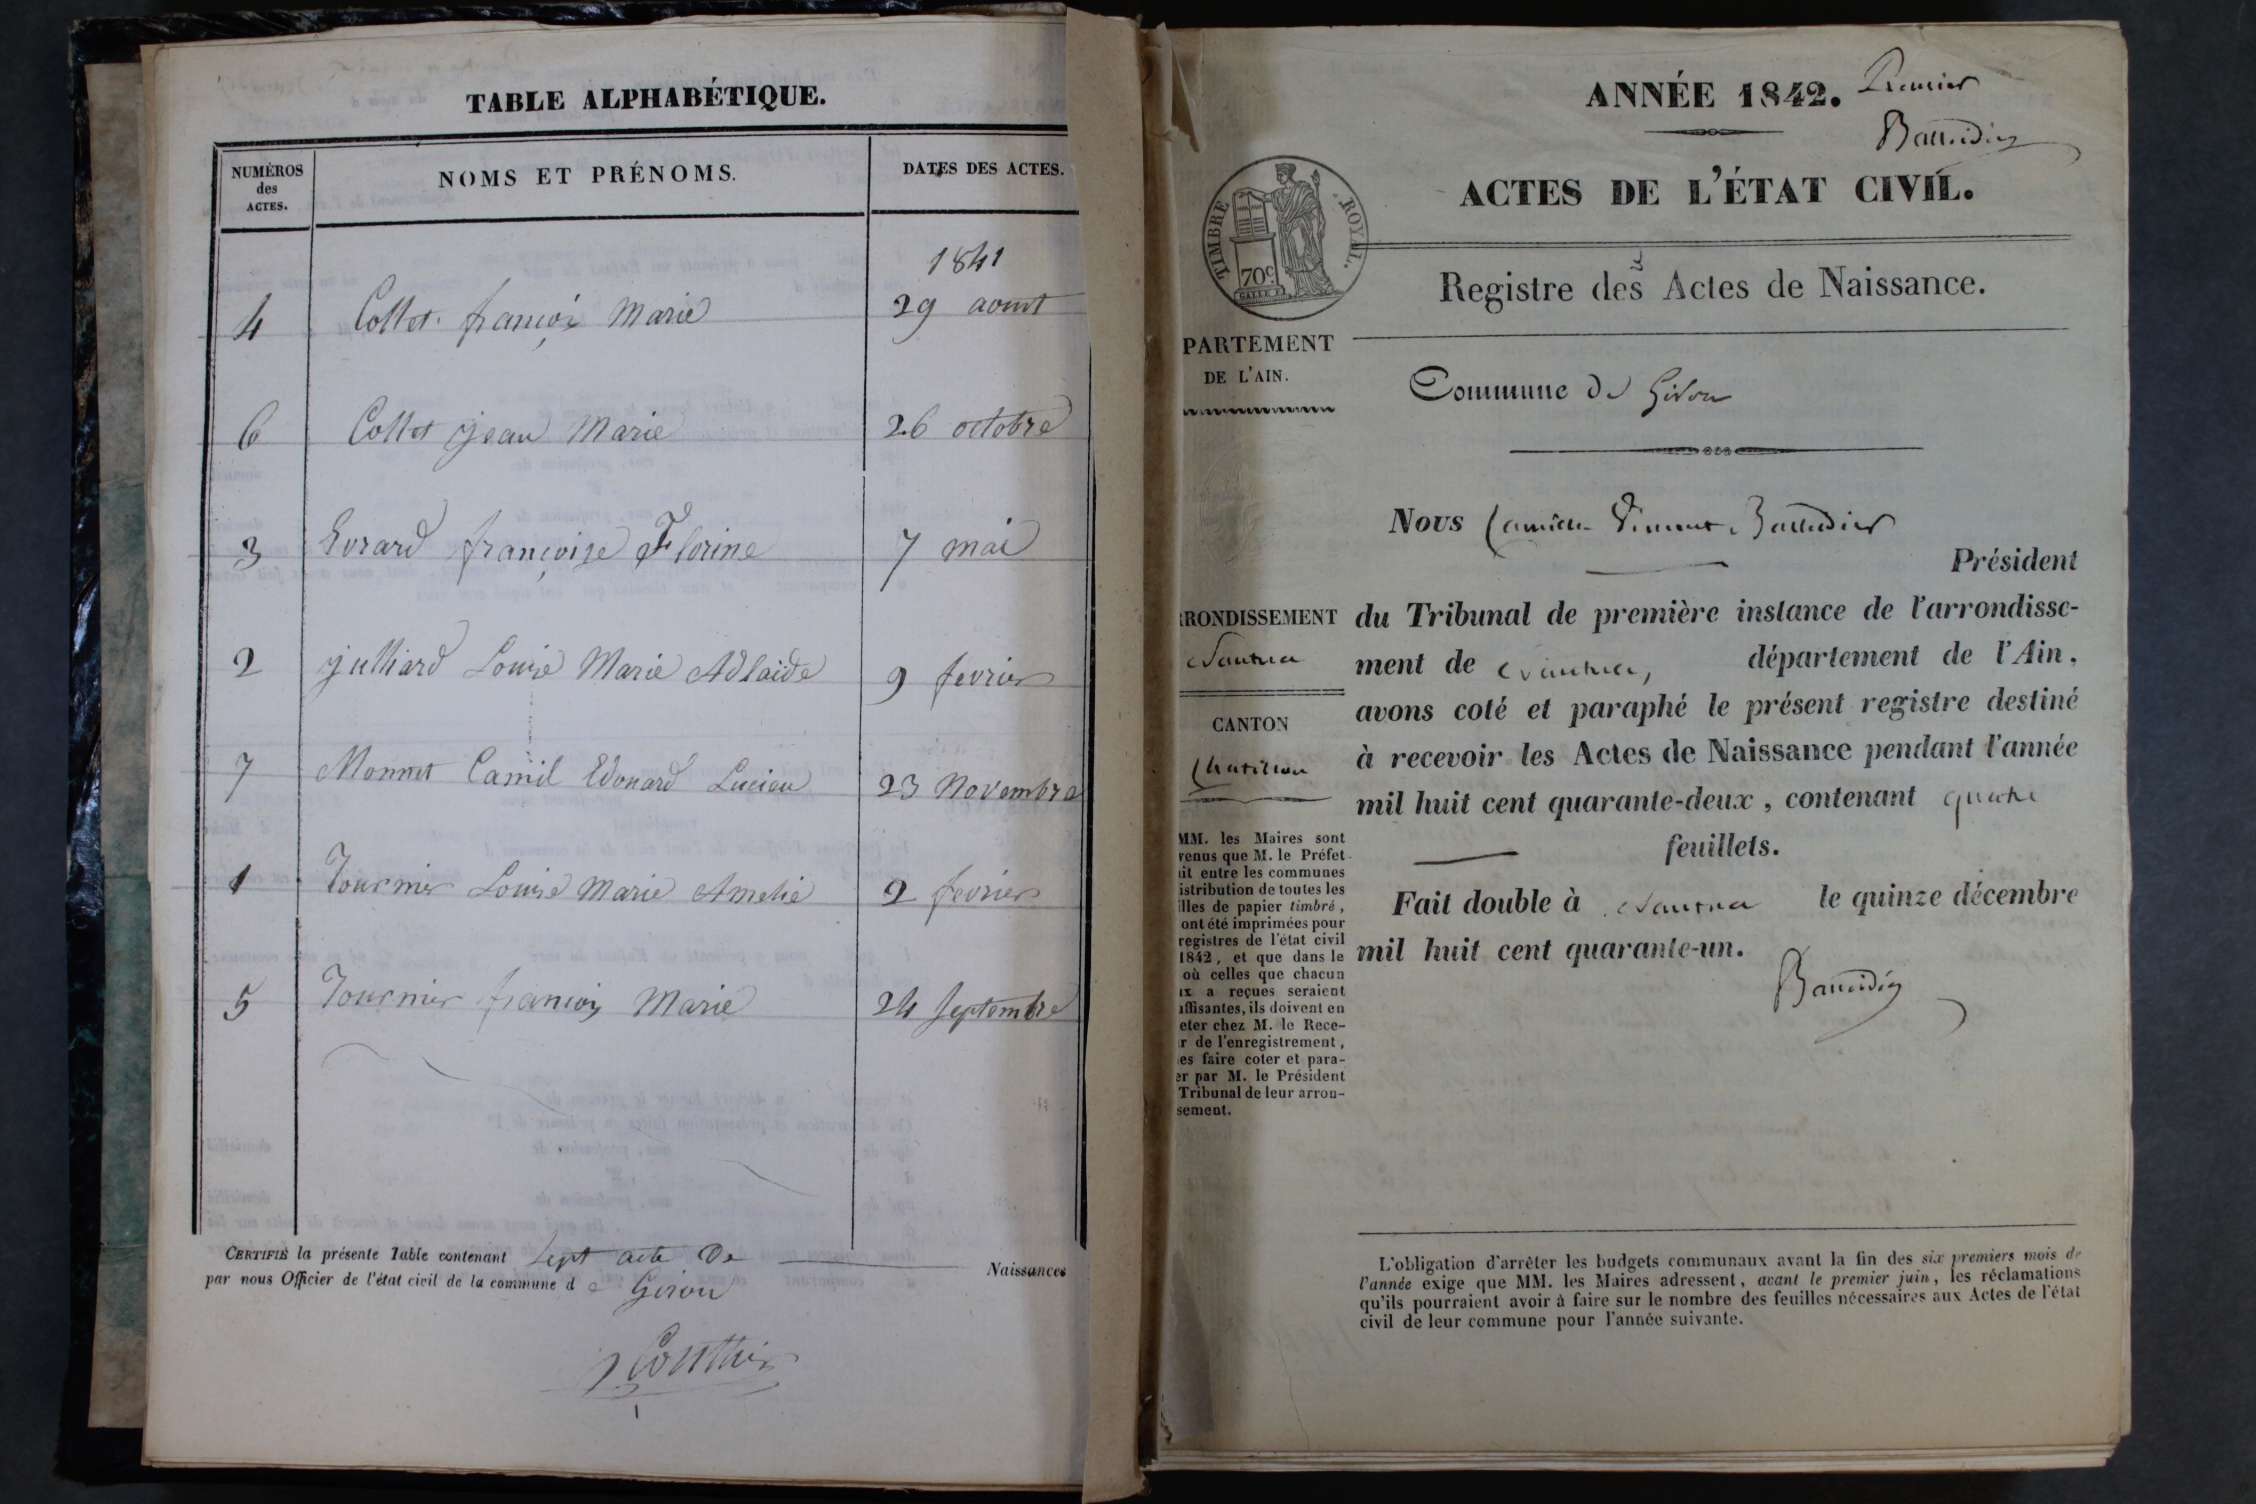 TABLE ALPHABÉTIQUE.
NUMÉROS
des
ACTES.
NOMS ET PRÉNOMS.
DATES DES ACTES.
1841
4 Collet françois Marie 29 aout
6 Collet jean Marie 26 octobre
3 Evrard françoise Florine 7 mai
2 julliard Louise Marie Adlaïde 9 fevrier
7 Monnet Camil Edouard Lucien 23 Novembre
1 Tournier Louise Marie Amelie 2 fevrier
5 Tournier françois Marie 24 Septembre
CERTIFIÉ la présente Table contenant Sept acte De Naissances
par nous Officier de l'état civil de la commune d e Giron
ANNÉE 1842.
Premier
ACTES DE L'ÉTAT CIVIL.
TIMBRE ROYAL.
70c
Registre des Actes de Naissance.
PARTEMENT
DE L'AIN.
Commune de Giron
Nous Camille Vincent Baudier
Président
RRONDISSEMENT
Nantua
CANTON
Chatillon
du Tribunal de première instance de l'arrondisse-
ment de Nantua, département de l'Ain,
avons coté et paraphé le présent registre destiné
à recevoir les Actes de Naissance pendant l'année
mil huit cent quarante-deux, contenant quatre
feuillets.
Fait double à Nantua le quinze décembre
mil huit cent quarante-un.
MM. les Maires sont
venus que M. le Préfet
ait entre les communes
istribution de toutes les
illes de papier timbré,
ont été imprimées pour
registres de l'état civil
1842, et que dans le
où celles que chacun
ux a reçues seraient
uffisantes, ils doivent en
eter chez M. le Rece-
r de l'enregistrement,
es faire coter et para-
er par M. le Président
Tribunal de leur arron-
sement.
L'obligation d'arrêter les budgets communaux avant la fin des six premiers mois de
l'année exige que MM. les Maires adressent, avant le premier juin, les réclamations
qu'ils pourraient avoir à faire sur le nombre des feuilles nécessaires aux Actes de l'état
civil de leur commune pour l'année suivante.